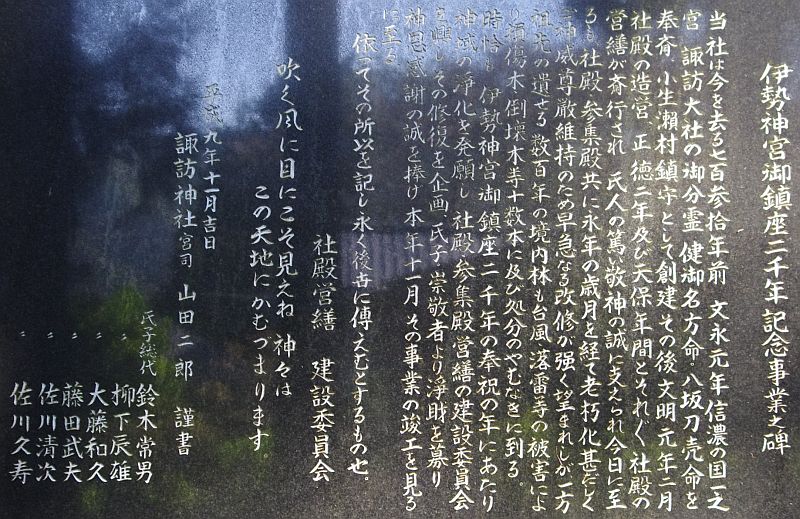 伊勢神宮御鎮座二千年記念事業之碑
当社は今を去る七百参拾年前 文永元年信濃の国一之
宮 諏訪大社の御分霊 健御名方命・八坂刀売命を
奉斎 小生瀬村鎮守として創建その後文明元年二月
社殿の造営 正徳二年及び天保年間とそれぐ社殿の
営繕が斎行され 氏人の篤い敬神の誠に支えられ今日に至
るも 社殿 参集殿共に永年の歳月を経て老朽化甚だしく
神威尊厳維持のため早急なる改修が強く望まれしが一方
祖先の遺せる数百年の境内林も台風 落雷等の被害によ
り損傷木倒壊木等十数本に及び処分のやむなきに到る。
時恰も 伊勢神宮御鎮座二千年の奉祝の年にあたり
神域の浄化を発願し 社殿・参集殿営繕の建設委員会
を興し その修復を企画、氏子、崇敬者より浄財を募り
神恩感謝の誠を捧げ 本年十月 その事業の竣工を見る
に至る
依ってその所以を記し永く後世に傳えむとするもの也。
社殿営繕 建設委員会
吹く風に目にこそ見えね 神々は
この天地にかむづまります。
平成九年十一月吉日
諏訪神社宮司 山田二郎 謹書
氏子総代 鈴木常男
〃 柳下辰雄
〃 大藤和久
〃 藤田武夫
〃 佐川清次
〃 佐川久寿